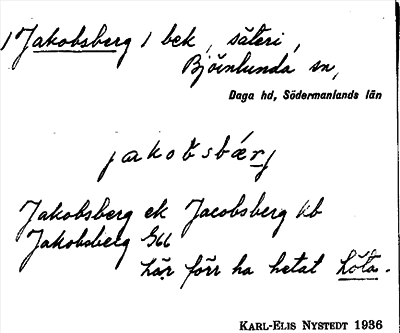 1 Jakobsberg 1 bek, säteri,
Björnlunda sn,
Daga hd, Södermanlands län
jakobsbærj
Jakobsberg ek Jacobsberg kb
Jakobsberg G66
här förr ha hetat Löta.
KARL-ELIS NYSTEDT 1936